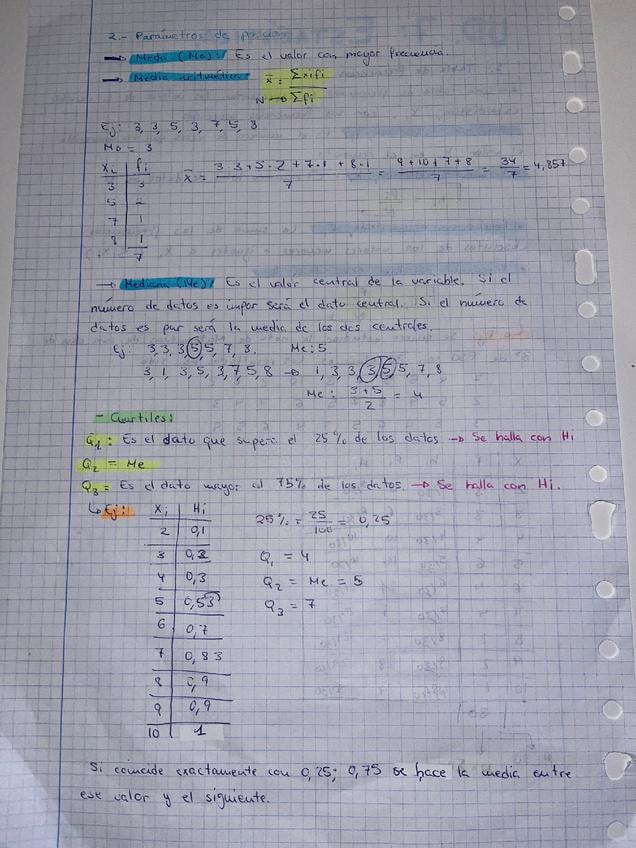 2.- Parámetros de posición
→ Moda (Mo): Es el valor con mayor frecuencia.
→ Media aritmética: x̄ = Σxifi
N → Σfi
Ej: 3, 3, 5, 3, 7, 5, 8
Mo = 3
xi | fi
3 | 3
5 | 2
7 | 1
8 | 1
7
x̄ = 3·3+5·2+7·1+8·1 / 7 = 9+10+7+8 / 7 = 34/7 = 4,857
→ Mediana (Me): Es el valor central de la variable. Si el
número de datos es impar será el dato central. Si el número de
datos es par será la media de los dos centrales.
Ej: 3, 3, 3, 5, 5, 7, 8. Me: 5
3, 1, 3, 5, 3, 7, 5, 8 → 1, 3, 3, 3, 5, 5, 7, 8
Me: 3+5 / 2 = 4
- Cuartiles:
Q1: Es el dato que supera el 25% de los datos → Se halla con Hi
Q2 = Me
Q3 = Es el dato mayor al 75% de los datos. → Se halla con Hi.
↳ Ej:
xi | Hi
2 | 0,1
3 | 0,2
4 | 0,3
5 | 0,53
6 | 0,7
7 | 0,83
8 | 0,9
9 | 0,9
10 | 1
25% = 25/100 = 0,25
Q1 = 4
Q2 = Me = 5
Q3 = 7
Si coincide exactamente con 0,25; 0,75 se hace la media entre
ese valor y el siguiente.